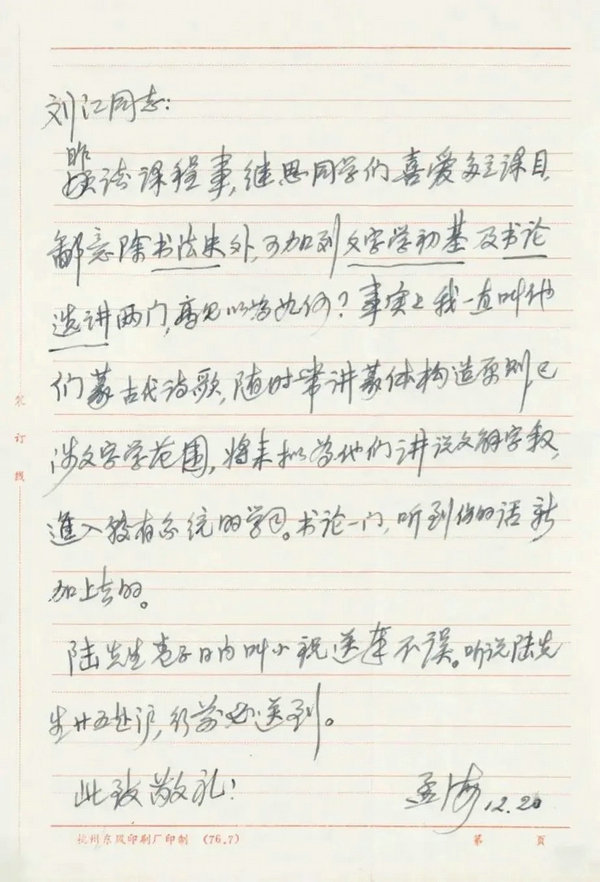 刘江同志：
昨谈课程事，继思同学们喜爱多立课目，
鄙意除书法史外，可加列文字学初基及书论
选讲两门，高见以为如何？事实上我一直叫他
们篆古代诗歌，随时常讲篆体构造原则，已
涉文字学范围，将来拟为他们讲说文解字叙，
進入较有系统的学习。书论一门，听到你的话新
加上去的。
陆先生卷子日内叫小祝送奉不误。听说陆先
生廿五赴沪，行前必送到。
此致敬礼！
孟海 12.20
装订线
杭州东风印刷厂印制 (76.7) 第 页